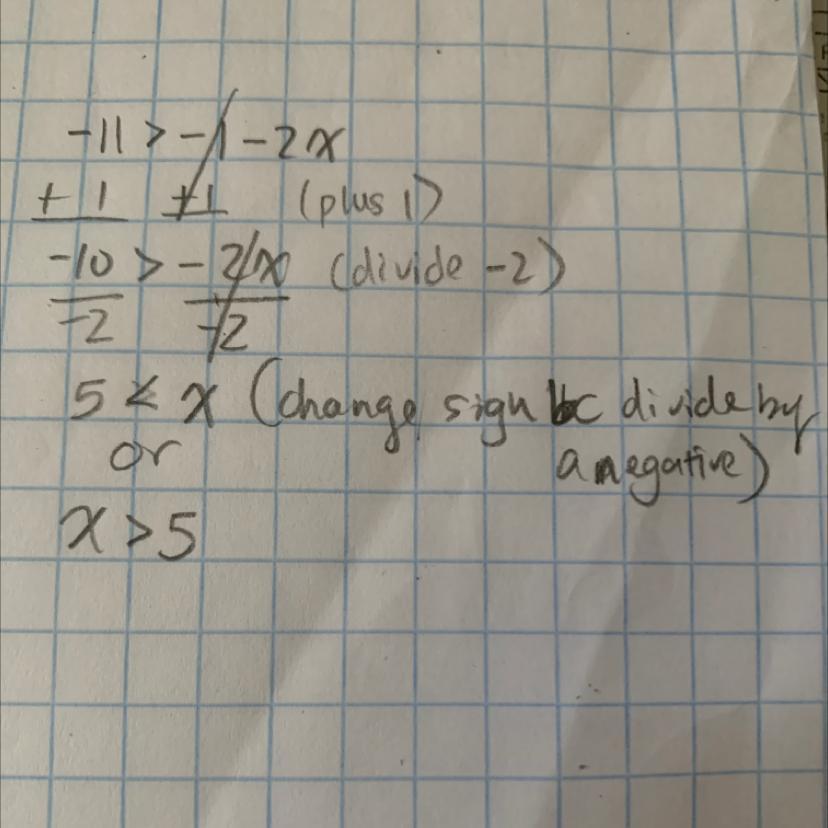 -11 > -1 - 2x
+ 1 +1 (plus 1)
-10 > - 2x (divide -2)
-2 -2
5 < x (change sign bc divide by
a negative)
or
x > 5